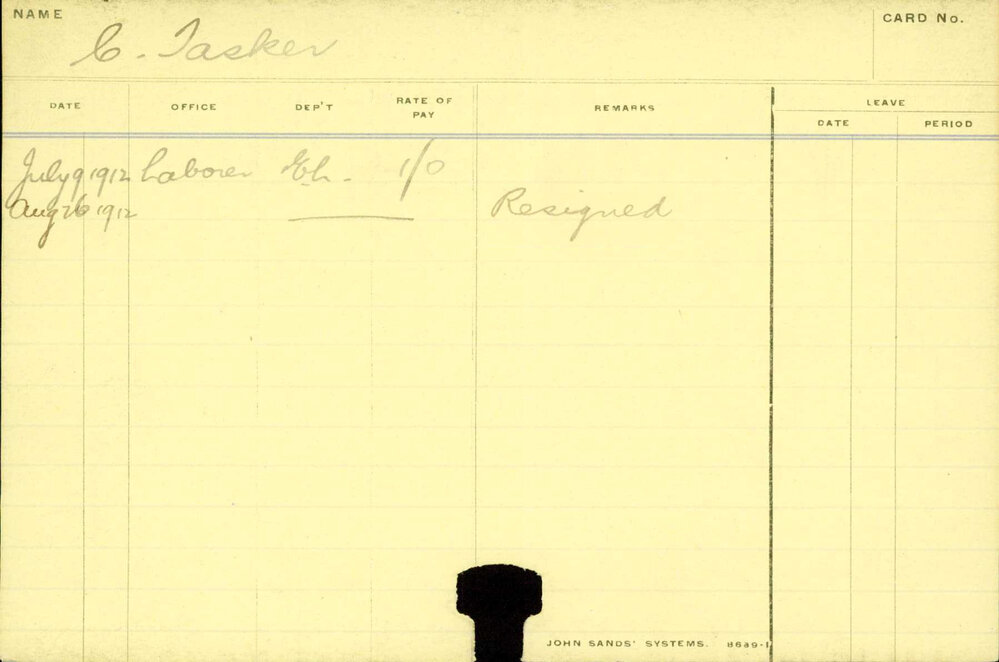 NAME
C. Tasker
CARD No.
DATE OFFICE DEP'T RATE OF PAY REMARKS LEAVE
DATE PERIOD
July 9 1912 Laborer 1/0
Aug 26 1912 Resigned
JOHN SANDS' SYSTEMS. 8689-1